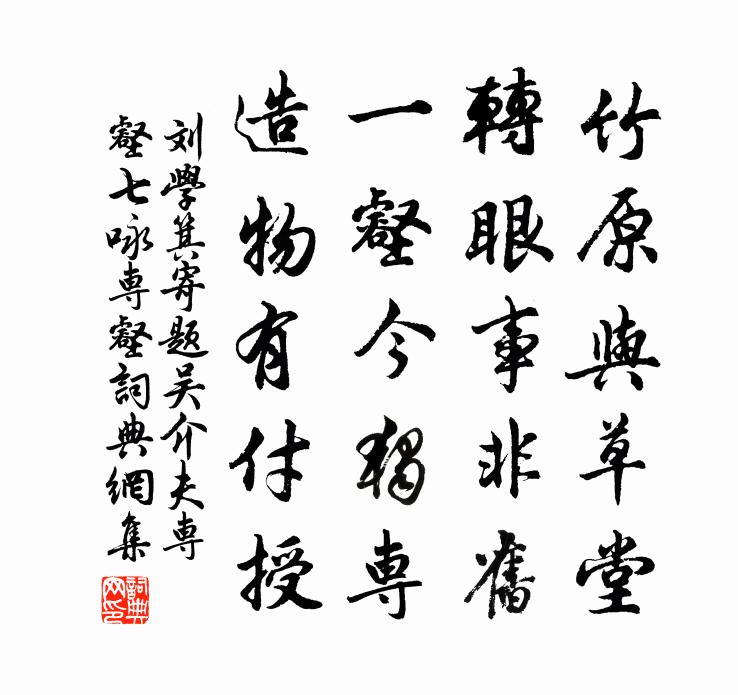 竹原與草堂
轉眼事非舊
一壑今獨專
造物有付授
刘學箕寄題吴介夫専
壑七咏専壑詞典網集
詞典网印